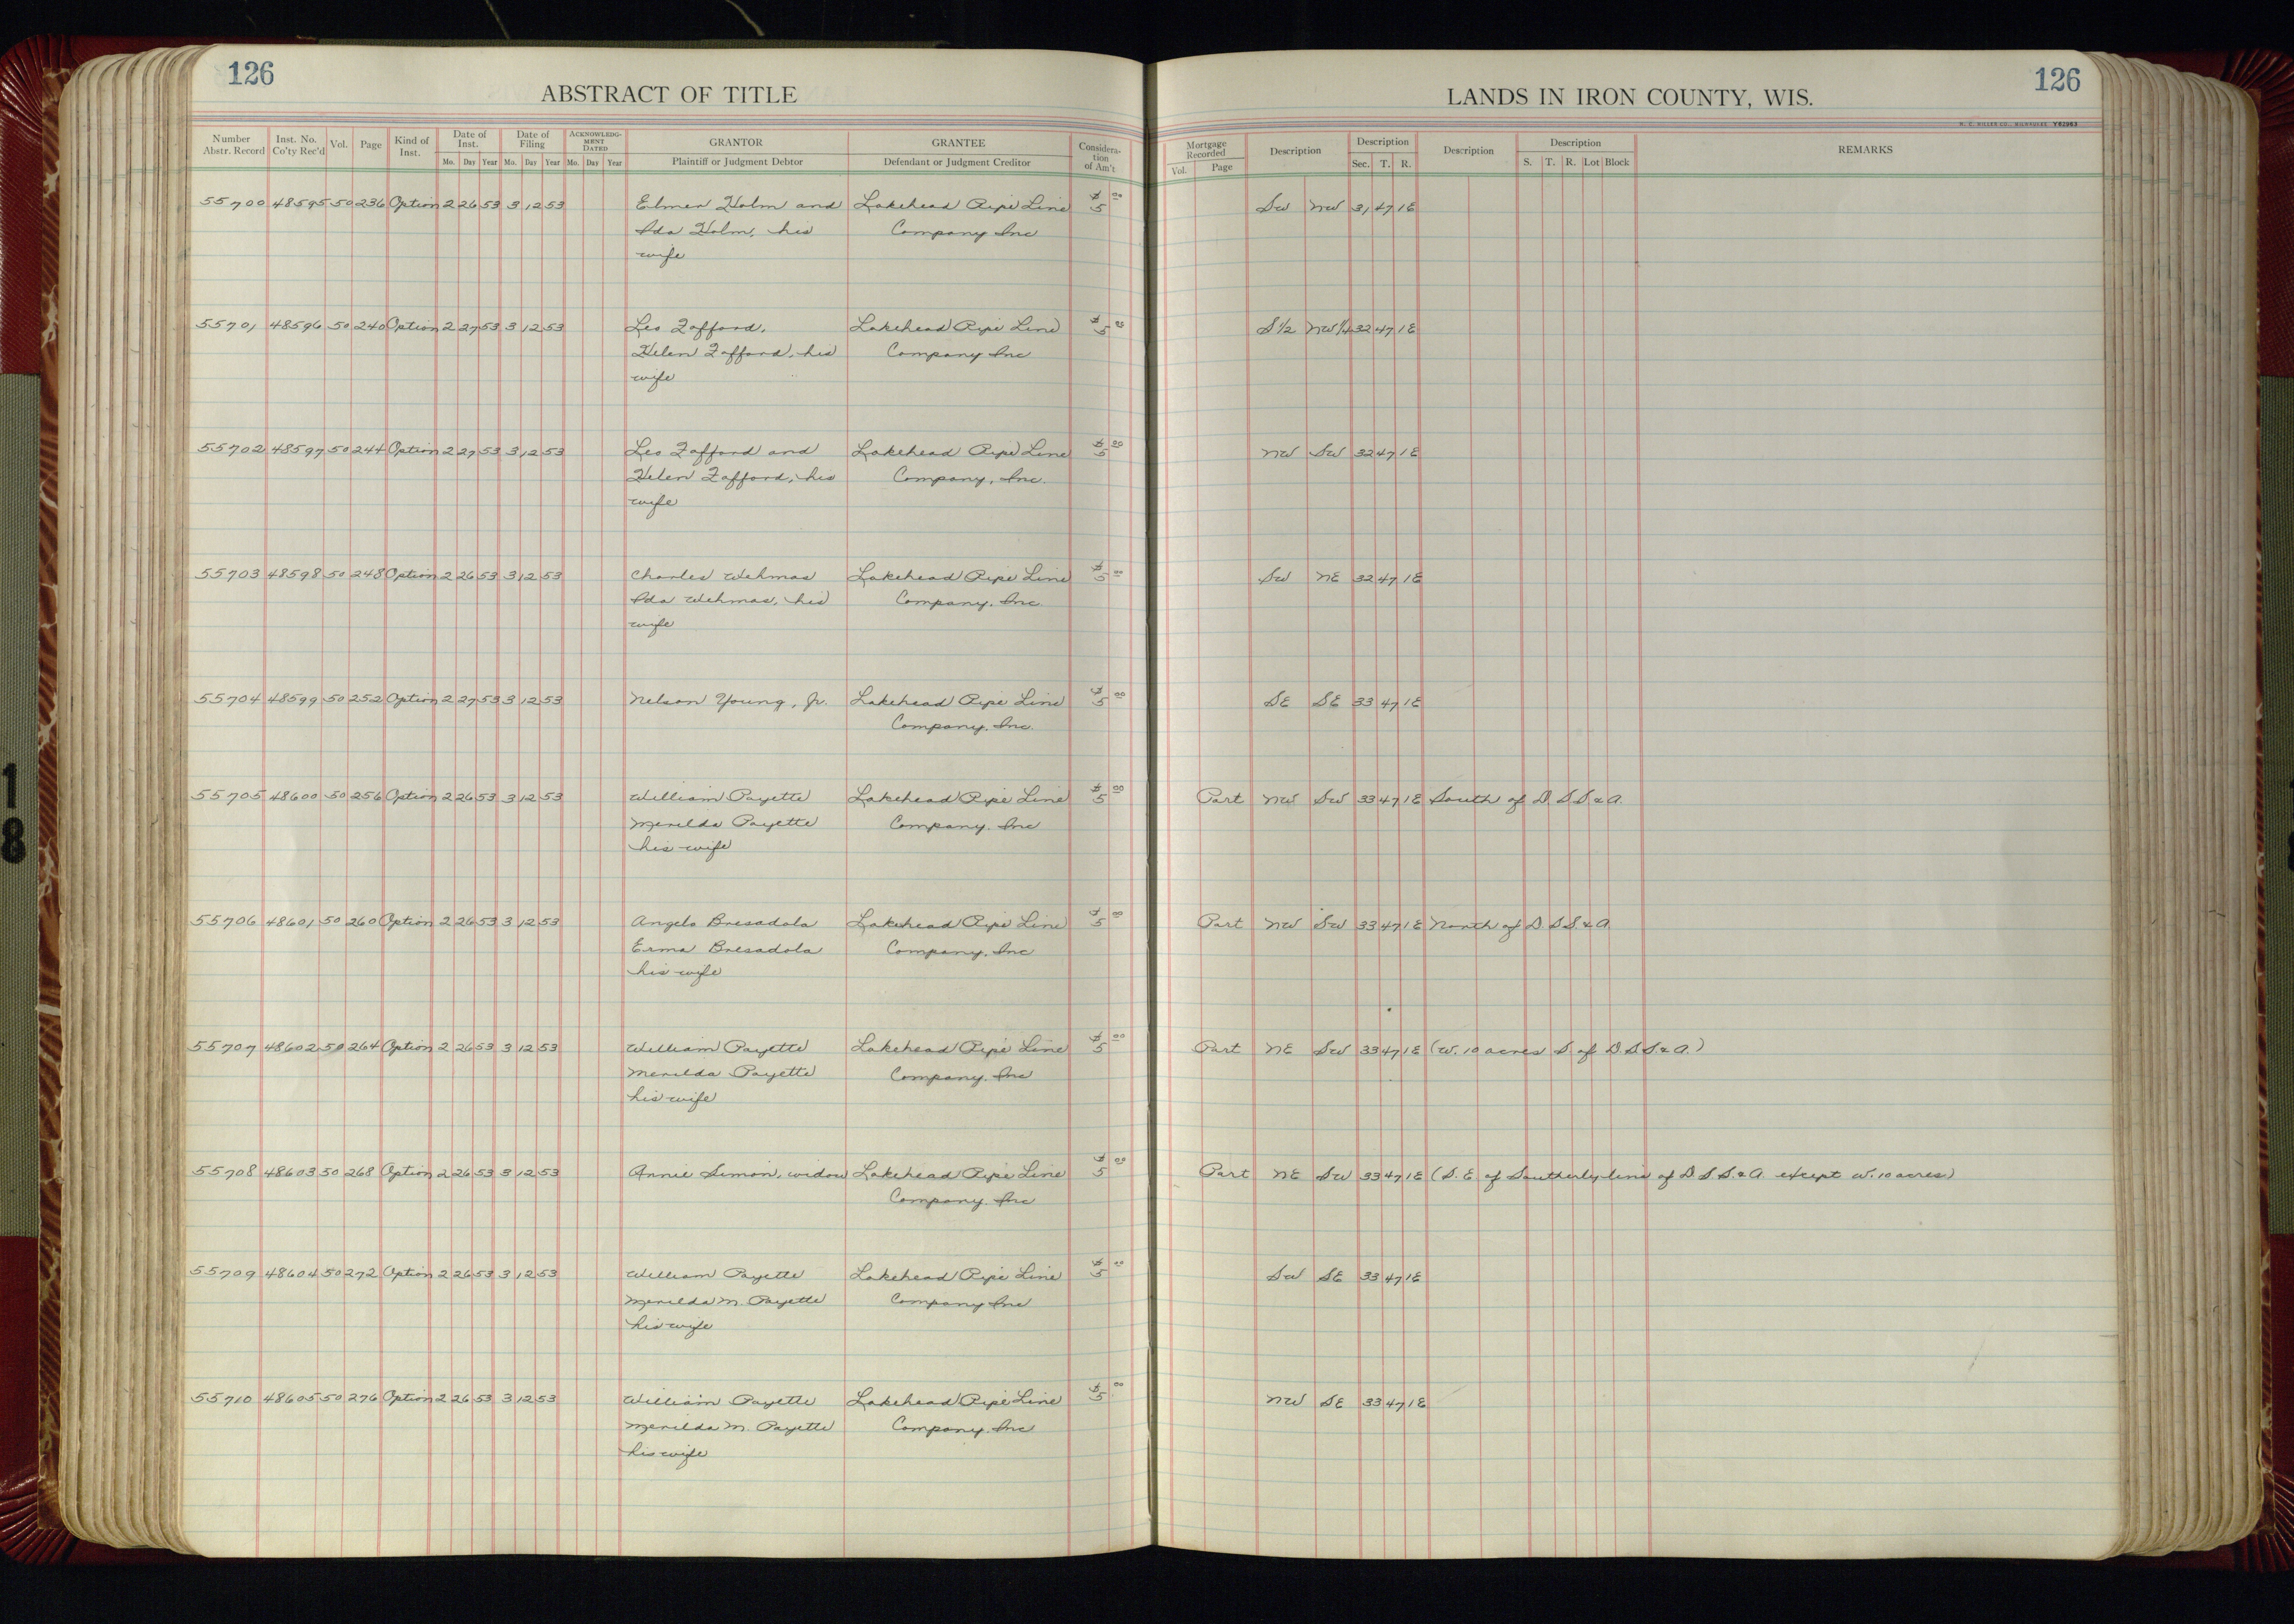 126
ABSTRACT OF TITLE
LANDS IN IRON COUNTY, WIS.
126
H. C. MILLER CO., MILWAUKEE Y62963
Number Abstr. Record Inst. No. Co'ty Rec'd Vol. Page Kind of Inst. Date of Inst. Mo. Day Year Date of Filing Mo. Day Year ACKNOWLEDGMENT DATED Mo. Day Year GRANTOR Plaintiff or Judgment Debtor GRANTEE Defendant or Judgment Creditor Consideration of Am't Mortgage Recorded Vol. Page Description Description Sec. T. R. Description Description S. T. R. Lot Block REMARKS
55700 48595 50 236 Option 2 26 53 3 12 53 Elmer Holm and Lakehead Pipe Line $5 00 SW NW 31 47 1E
Ida Holm, his Company Inc
wife
55701 48596 50 240 Option 2 27 53 3 12 53 Leo Zafford, Lakehead Pipe Line $5 00 S 1/2 NW 1/4 32 47 1E
Helen Zafford, his Company Inc
wife
55702 48597 50 244 Option 2 27 53 3 12 53 Leo Zafford and Lakehead Pipe Line $5 00 NW SW 32 47 1E
Helen Zafford, his Company, Inc.
wife
55703 48598 50 248 Option 2 26 53 3 12 53 Charles Wehmas Lakehead Pipe Line $5 00 SW NE 32 47 1E
Ida Wehmas, his Company, Inc.
wife
55704 48599 50 252 Option 2 27 53 3 12 53 Nelson Young, Jr. Lakehead Pipe Line $5 00 SE SE 33 47 1E
Company, Inc.
55705 48600 50 256 Option 2 26 53 3 12 53 William Payette Lakehead Pipe Line $5 00 Part NW SW 33 47 1E South of D. S S & A.
Merilda Payette Company. Inc
his wife
55706 48601 50 260 Option 2 26 53 3 12 53 Angelo Bresadola Lakehead Pipe Line $5 00 Part NW SW 33 47 1E North of D. S S. & A
Erma Bresadola Company, Inc
his wife
55707 48602 50 264 Option 2 26 53 3 12 53 William Payette Lakehead Pipe Line $5 00 Part NE SW 33 47 1E (W. 10 acres S. of D. S. S. & A.)
Merilda Payette Company. Inc
his wife
55708 48603 50 268 Option 2 26 53 3 12 53 Annie Simon, widow Lakehead Pipe Line $5 00 Part NE SW 33 47 1E (S. E. of Southerly line of D S S. & A. except W. 10 acres)
Company. Inc
55709 48604 50 272 Option 2 26 53 3 12 53 William Payette Lakehead Pipe Line $5 00 SW SE 33 47 1E
Merilda M. Payette Company Inc
his wife
55710 48605 50 276 Option 2 26 53 3 12 53 William Payette Lakehead Pipe Line $5 00 NW SE 33 47 1E
Merilda M. Payette Company. Inc
his wife
1
8